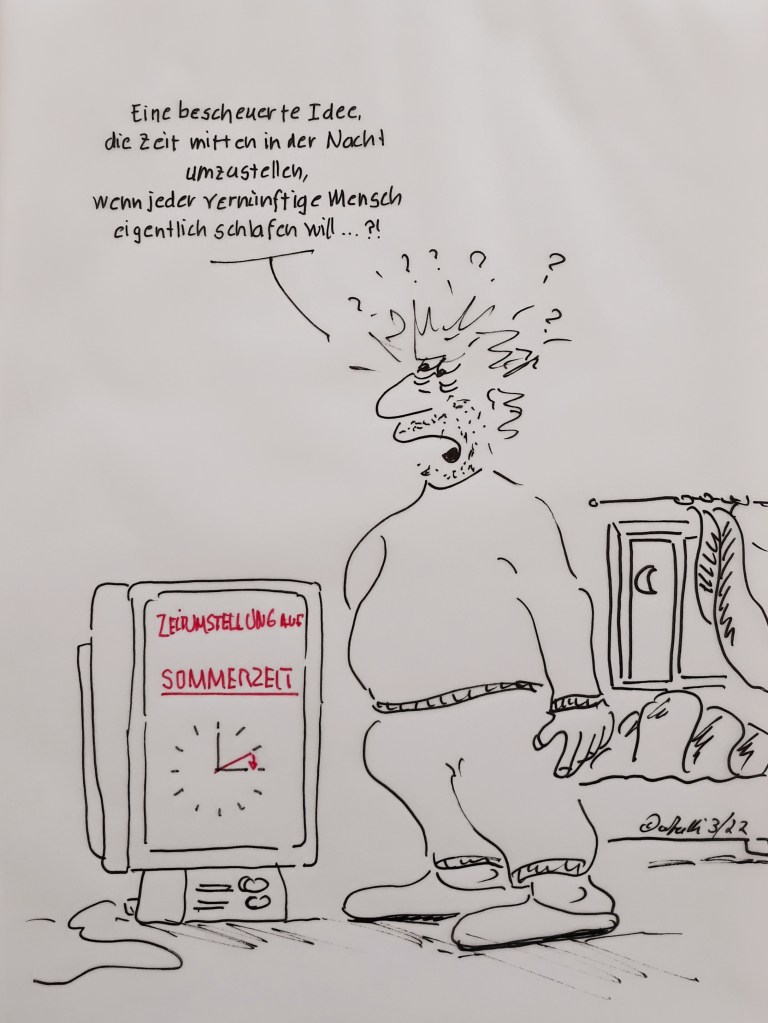 Eine bescheuerte Idee,
die Zeit mitten in der Nacht
umzustellen,
wenn jeder vernünftige Mensch
eigentlich schlafen will ... ?!
? ? ? ? ? ?
ZEITUMSTELLUNG AUF
SOMMERZEIT
3/22